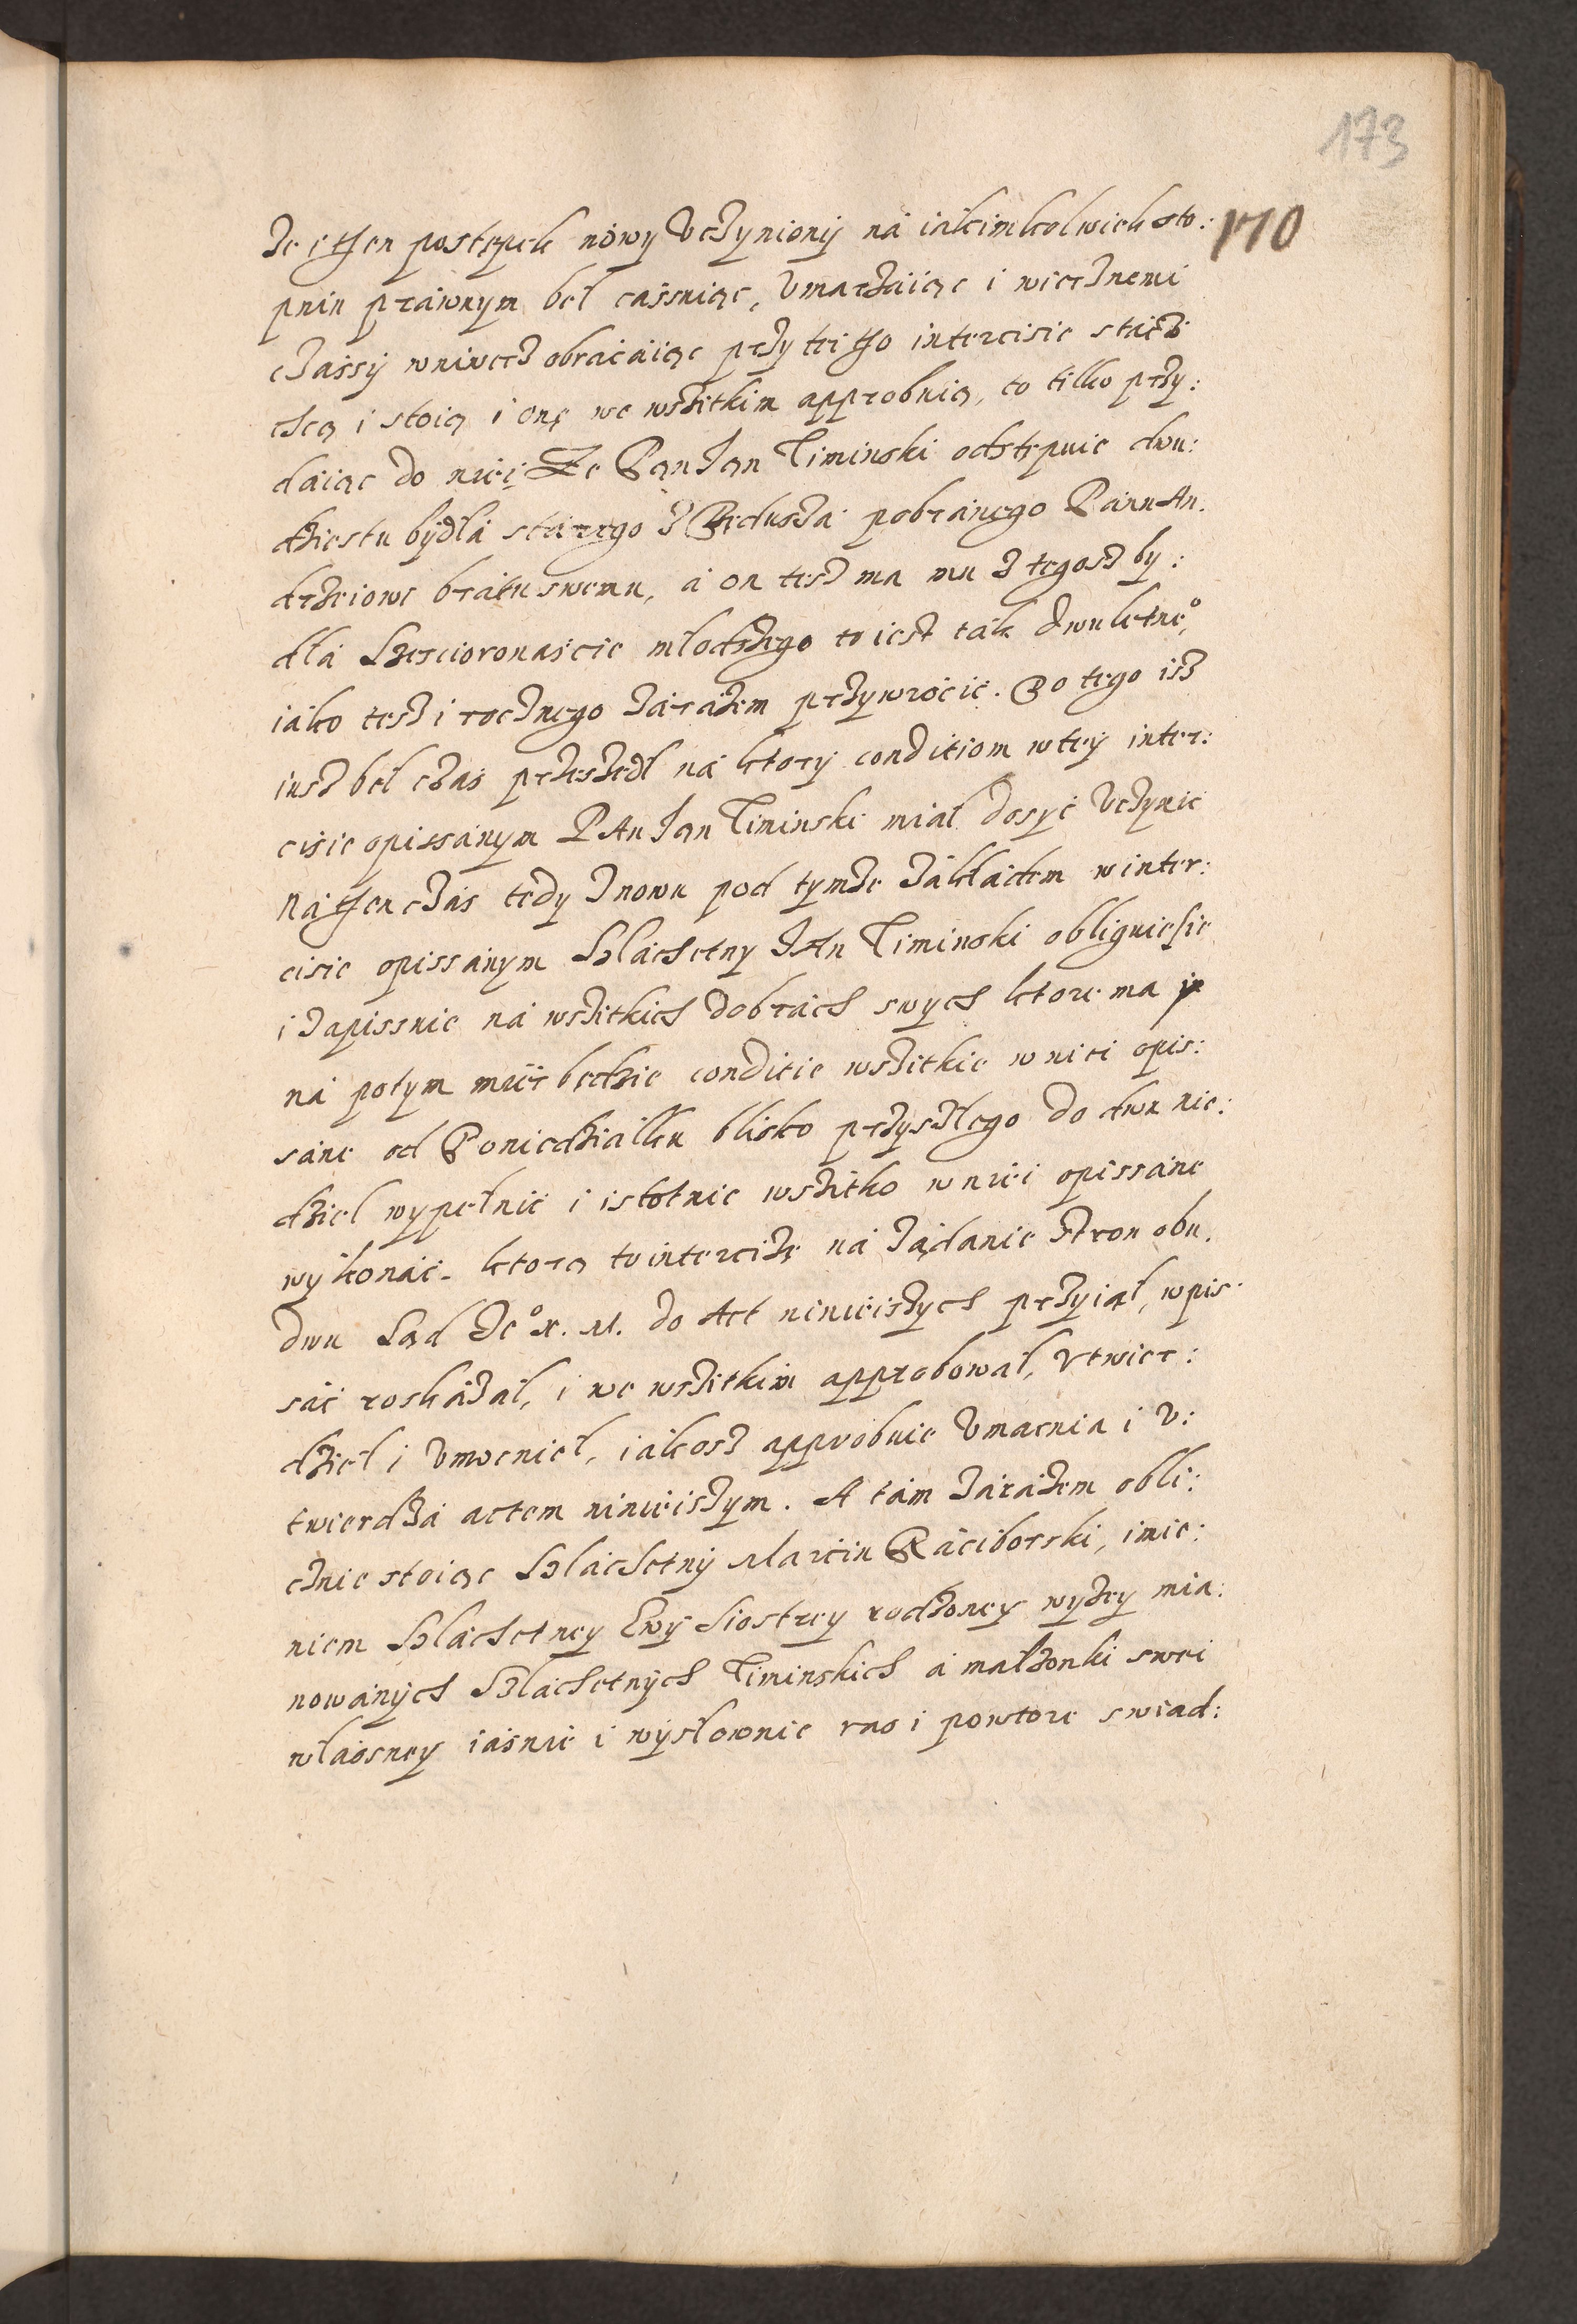 173
170
że i then postępek nowy vczynionÿ ná iákimkolwiek sto:
pniu práwnym beł cassuiąc, vmarzáiąc i wiecznemi
czássÿ wniwecz obracáiąc przy tei tho intercisie stácz
chcą i stoią i onę we wszitkim approbuią, to tilko przy:
dáiąc do niei Że Pan Jan Timinski odstępuie dwu:
dziestu bÿdłá stárego z Bedusza pobránego Pánu An.
drzeiowi brátu swemu, á on tesz ma mu z tegosz by:
dłá Szescioronáscie młodszego to iest ták dwuletne°,
iáko tesz i rocznego zárázem przywrócic. Po tego isz
iusz beł czás przeszedł ná ktory conditiom w tey inter:
cisie opissánym PAn Jan Timinski miał dosyć vczynic
Ná then czás tedy znowu pod tymże zakłádem w inter:
cisie opissánym Szláchetny JAn Timinski obliguie sie
i zapissuie ná wszitkich dobrách swych ktore ma i
ná potym mieć będzie conditie wszitkie w niei opis:
sáne od Poniedziáłku blisko przyszłego do dwu nie:
dziel wypełnić i istotnie wszitko w niei opissáne
wykonáć. ktorą to intercizę ná żądanie stron obu.
dwu Sąd Je° K. M. do Act ninieiszych przyiął, wpis:
sáć roskázał, i we wszitkim approbował, vtwier:
dzieł i vmocnieł, iákosz approbuie vmacnia i v:
twierdza actem ninieiszym. A tám zárázem obli:
cznie stoiąc Szláchetnÿ Marcin Ráciborski, imie:
niem Szláchetney Ewÿ Siostrey rodzoney wyżey mia:
nowánÿch Szlachetnÿch Timinskich á małżonki swei
własney iásnie i wysłownie raz i powtore swiad: